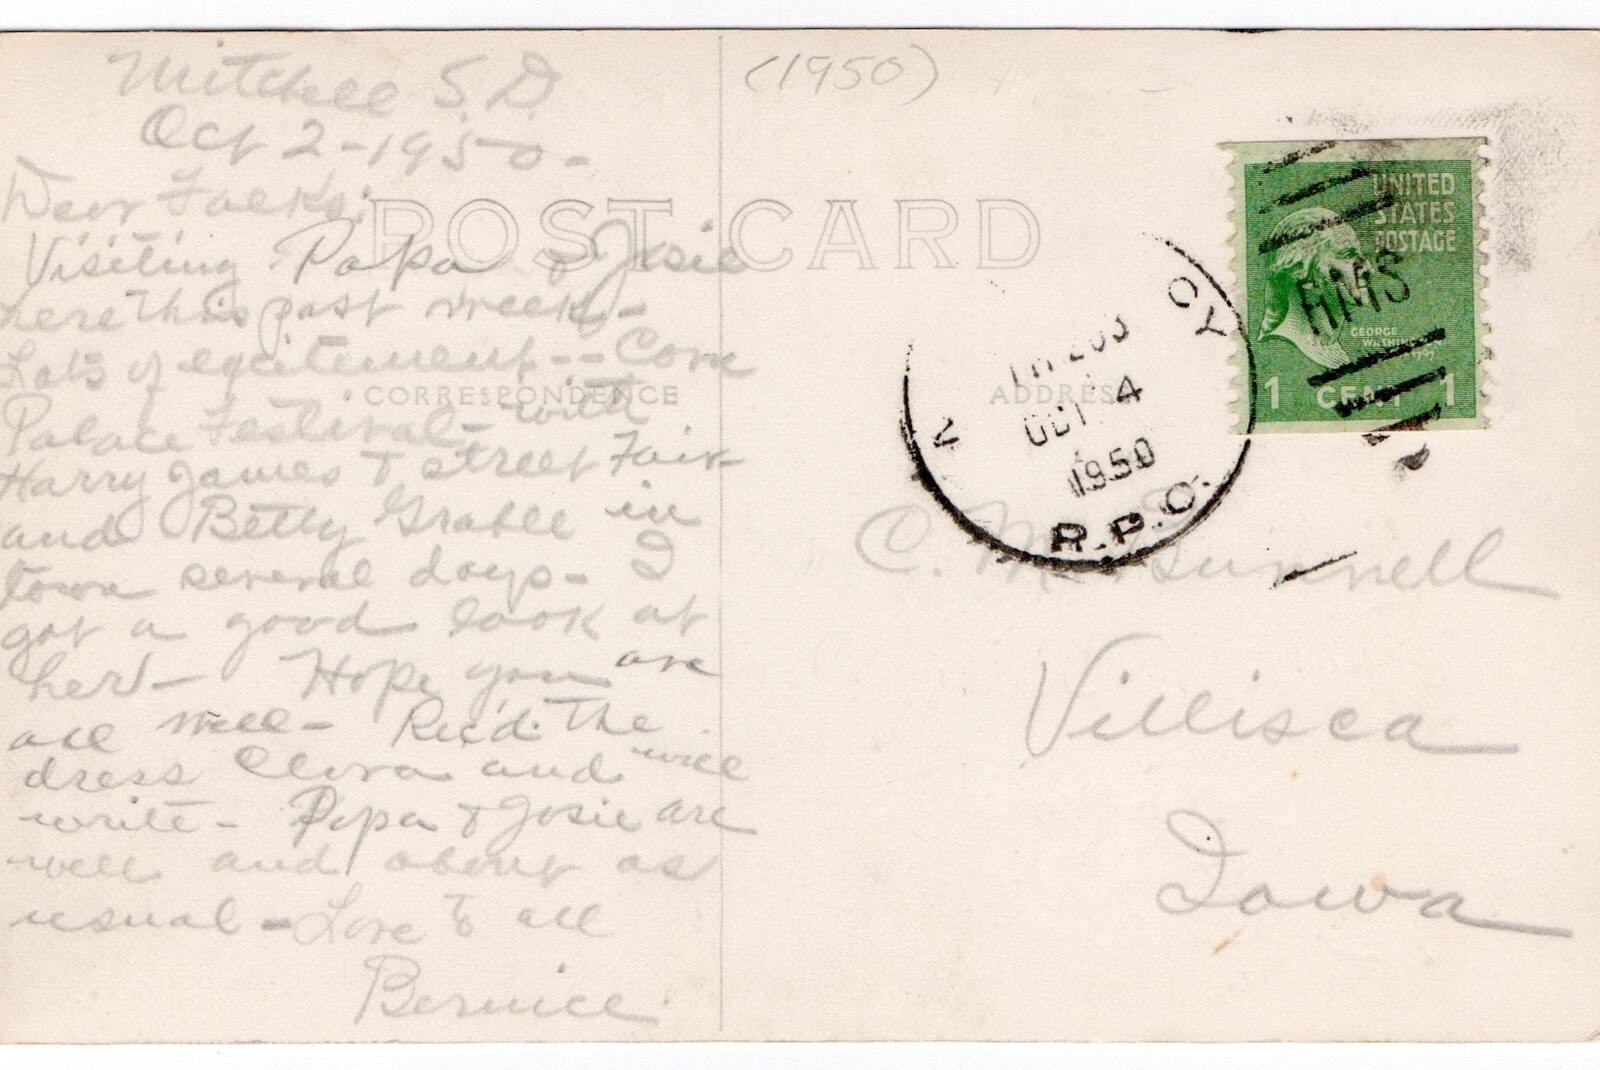 (1950)
Mitchell S.D.
Oct 2-1950-
Dear Folks:
Visiting Papa & Josie
here this past week-
Lots of excitement-- Corn
Palace Festival- with
Harry James & street Fair
and Betty Grable in
town several days- I
got a good look at
her- Hope you are
all well- Rec'd. the
dress Clora and will
write- Papa & Josie are
well and about as
usual- Love to all
Bernice.
POST CARD
CORRESPONDENCE
ADDRESS
CY
OCT 4
1950
R.P.O.
RMS
UNITED
STATES
POSTAGE
GEORGE
WASHINGTON
1 CENT 1
C. M. Bunnell
Villisca
Iowa